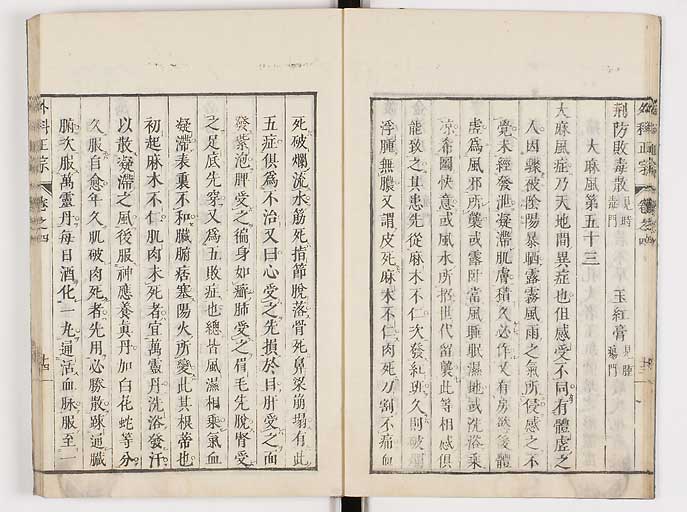 荆防敗毒散 見時毒門 玉紅膏 見腫瘍門
大麻風第五十三
大麻風症乃天地間異症也但感受不同有體虛之
人因驟被陰陽暴晒露霧風雨之氣所侵感之不
覺未經發泄凝滯肌膚積久必作又有房慾後體
虛爲風邪所襲或露臥當風睡眠濕地或洗浴乗
凉希圖快意或風水所招世代留襲此等相感俱
能致之其患先從麻木不仁次發紅斑久則破爛
浮腫無膿又謂皮死麻木不仁肉死刀割不痛血
死破爛流水筋死指節脫落骨死鼻梁崩塌有此
五症俱爲不治又曰心受之先損於目肝受之面
發紫泡脾受之徧身如癬肺受之眉毛先脫腎受
之足底先穿又爲五敗症也總皆風濕相乗氣血
凝滯表裏不和臟腑痞塞陽火所變此其根蔕也
初起麻木不仁肌肉未死者宜萬靈丹洗浴發汗
以散凝滯之風後服神應養真丹加白花蛇等分
久服自愈年久肌破肉死者先用必勝散踈通臟
腑次服萬靈丹每日酒化一九通活血脉服至一
外科正宗 卷之四 十四